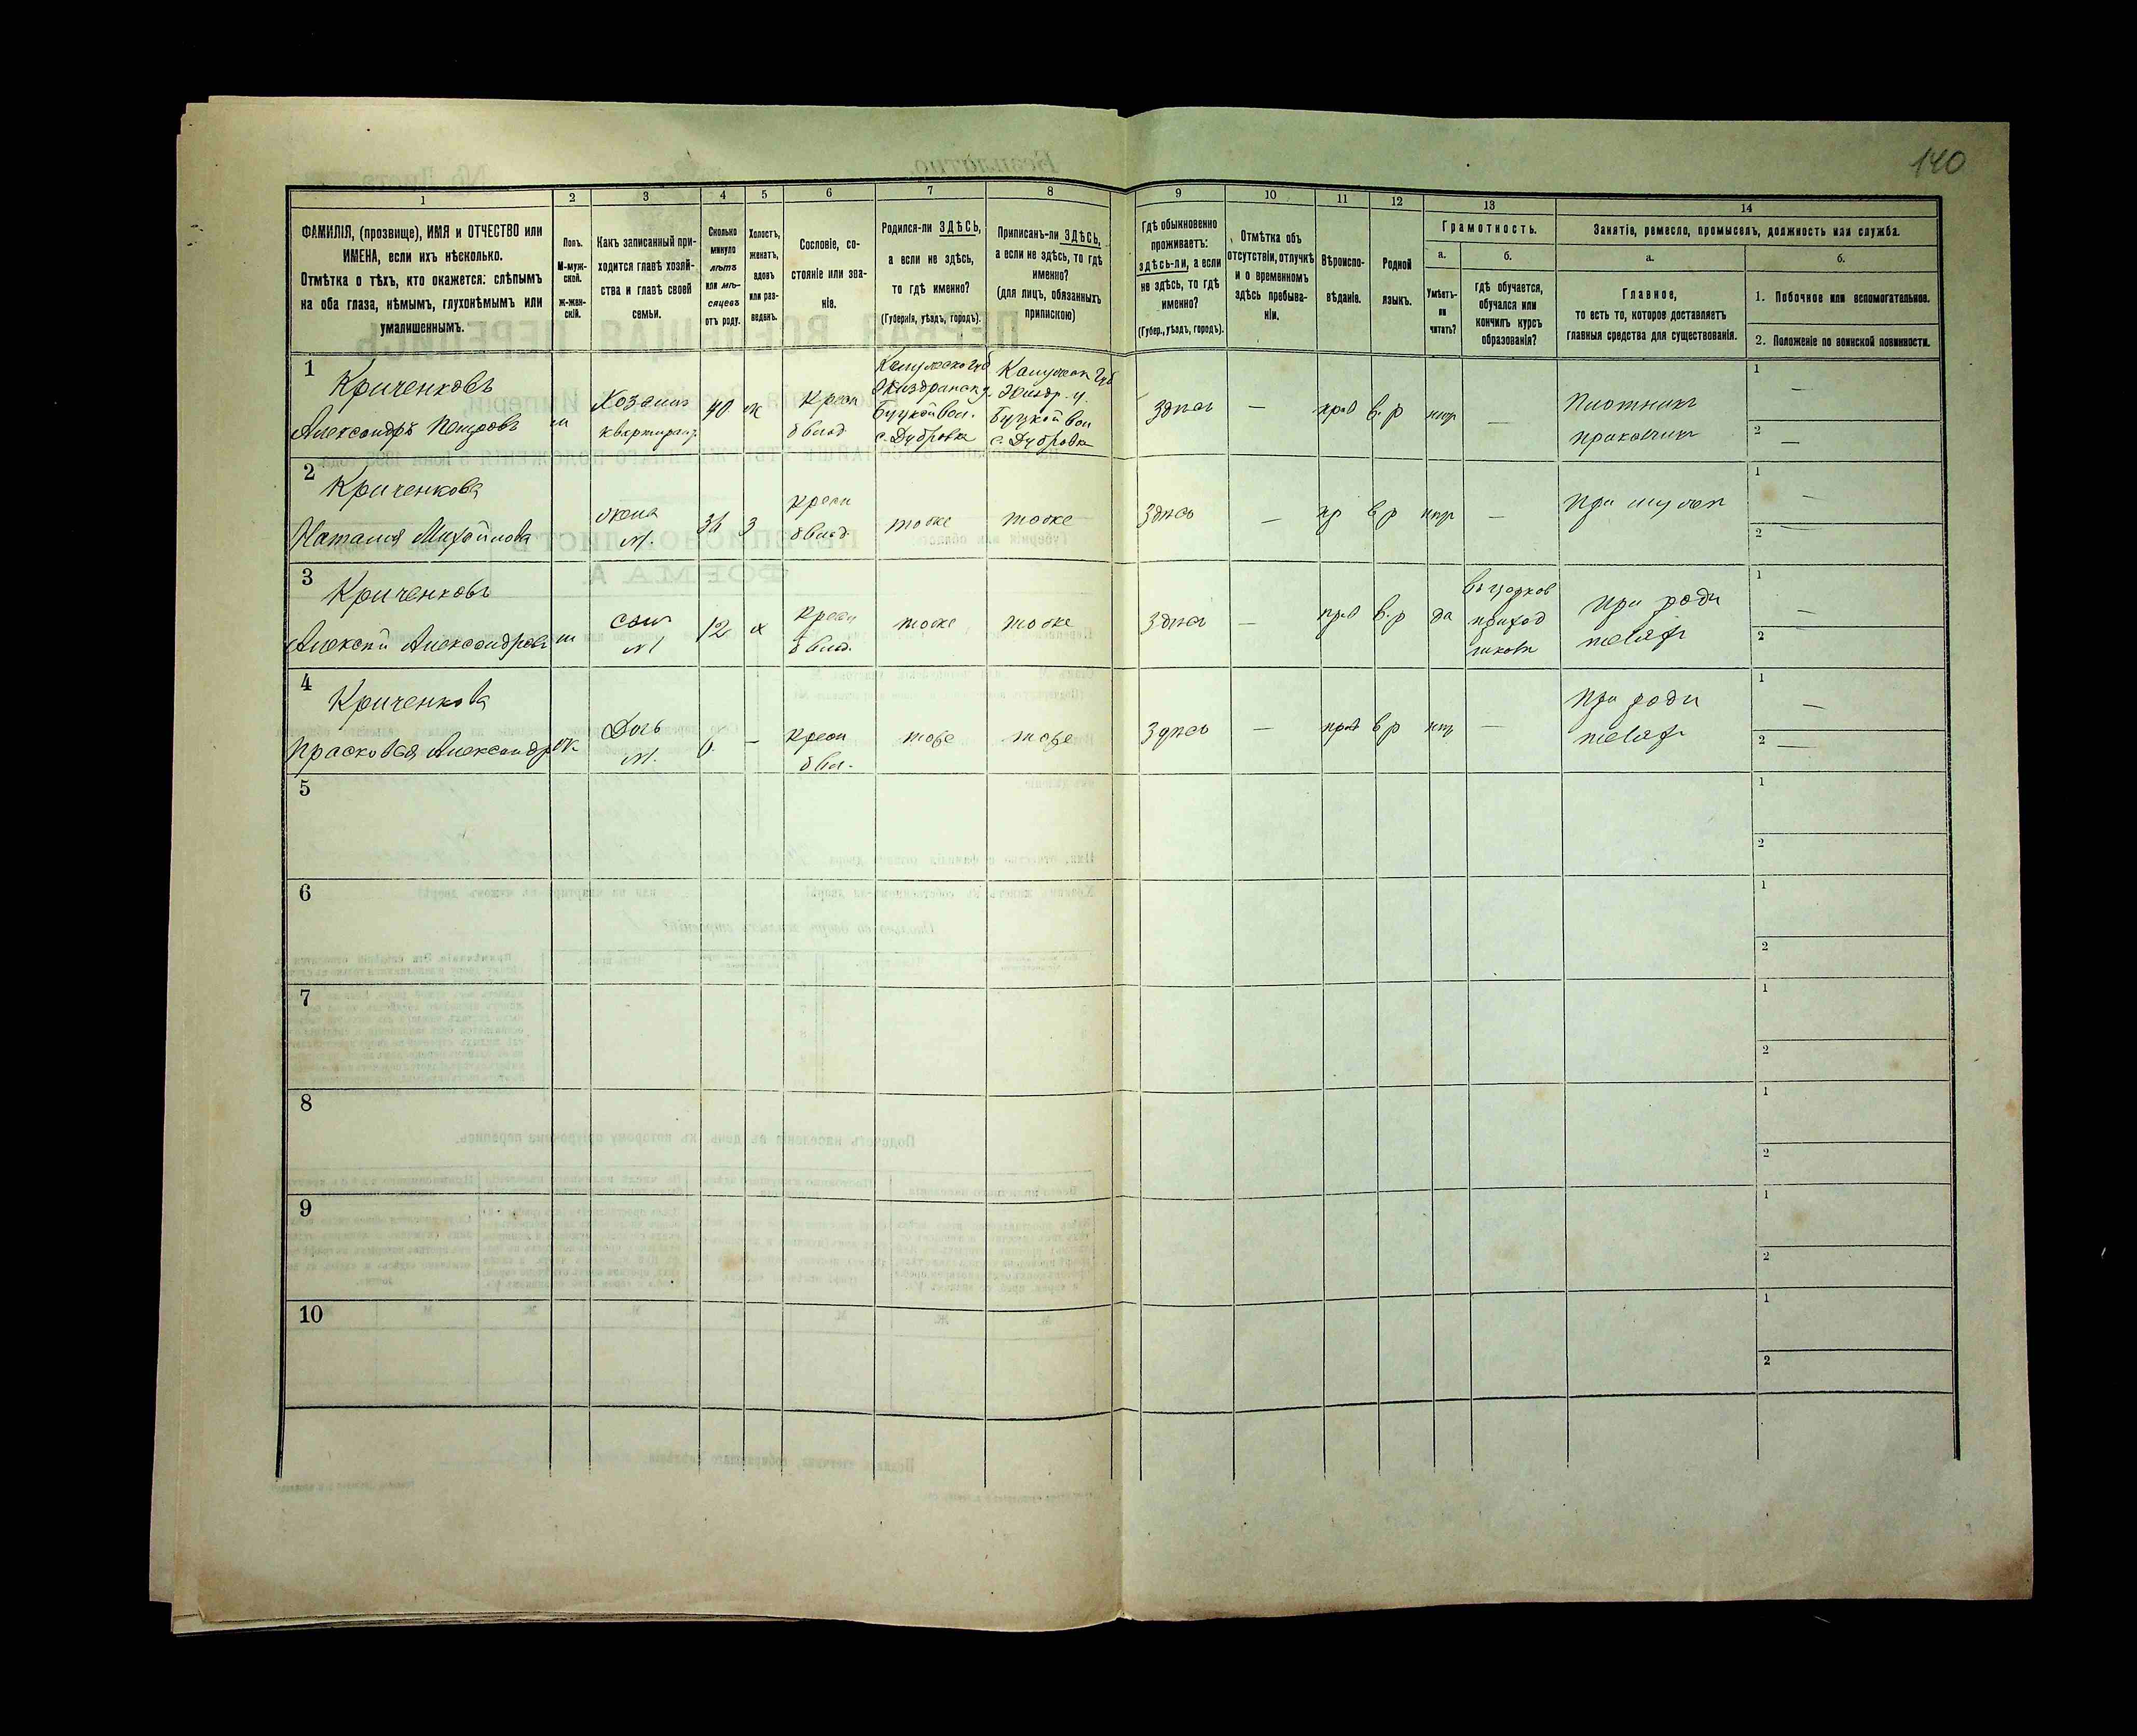 140
1
2
3
4
5
6
7
8
9
10
11
12
13
14
ФАМИЛІЯ, (прозвище), ИМЯ и ОТЧЕСТВО или
ИМЕНА, если ихъ нѣсколько.
Отмѣтка о тѣхъ, кто окажется: слѣпымъ
на оба глаза, нѣмымъ, глухонѣмымъ или
умалишеннымъ.
Полъ.
М-муж-
ской.
ж-жен-
скій.
Какъ записанный при-
ходится главѣ хозяй-
ства и главѣ своей
семьи.
Сколько
минуло
лѣтъ
или мѣ-
сяцевъ
отъ роду.
Холостъ,
женатъ,
вдовъ
или раз-
веденъ.
Сословіе, со-
стояніе или зва-
ніе.
Родился-ли ЗДѢСЬ,
а если не здѣсь,
то гдѣ именно?
(Губернія, уѣздъ, городъ).
Приписанъ-ли ЗДѢСЬ,
а если не здѣсь, то гдѣ
именно?
(для лицъ, обязанныхъ
припискою)
Гдѣ обыкновенно
проживаетъ:
здѣсь-ли, а если
не здѣсь, то гдѣ
именно?
(Губер., уѣздъ, городъ).
Отмѣтка объ
отсутствіи, отлучкѣ
и о временномъ
здѣсь пребыва-
ніи.
Вѣроиспо-
вѣданіе.
Родной
языкъ.
Грамотность.
а.
Умѣетъ-
ли
читать?
б.
гдѣ обучается,
обучался или
кончилъ курсъ
образованія?
Занятіе, ремесло, промыселъ, должность или служба.
а.
Главное,
то есть то, которое доставляетъ
главныя средства для существованія.
б.
1. Побочное или вспомогательное.
2. Положеніе по воинской повинности.
1
Криченковъ
Александръ Петровъ
м
Хозяинъ
квартиран.
40
ж
Крест
б влад
Калужской губ
Жиздринск у.
Буцкой вол.
с. Дубровка
Калужск губ
Жиздр. у.
Буцкой вол
с. Дубровка
Здѣсь
—
прав
в. р
нѣт
—
Плотникъ
1
—
2
—
2
Криченкова
Наталия Михайлова
жена
№1.
36
З
крест
б влад.
тоже
тоже
Здѣсь
—
пр
в р
нѣт
—
При мужѣ
1
—
2
—
3
Криченковъ
Алексѣй Александровъ
м
сын
№1
12
х
Крест
б влад.
тоже
тоже
Здѣсь
—
прав
в. р
да
въ церков
приход
школѣ
при роди
теляхъ
1
—
2
4
Криченкова
Прасковья Александр
ж.
Дочь
№1.
6.
—
Крест
б вл.
тоже
тоже
Здѣсь
—
прав
в р
нѣт
—
При роди
теляхъ
1
—
2
—
5
1
2
6
1
2
7
1
2
8
1
2
9
1
2
10
1
2